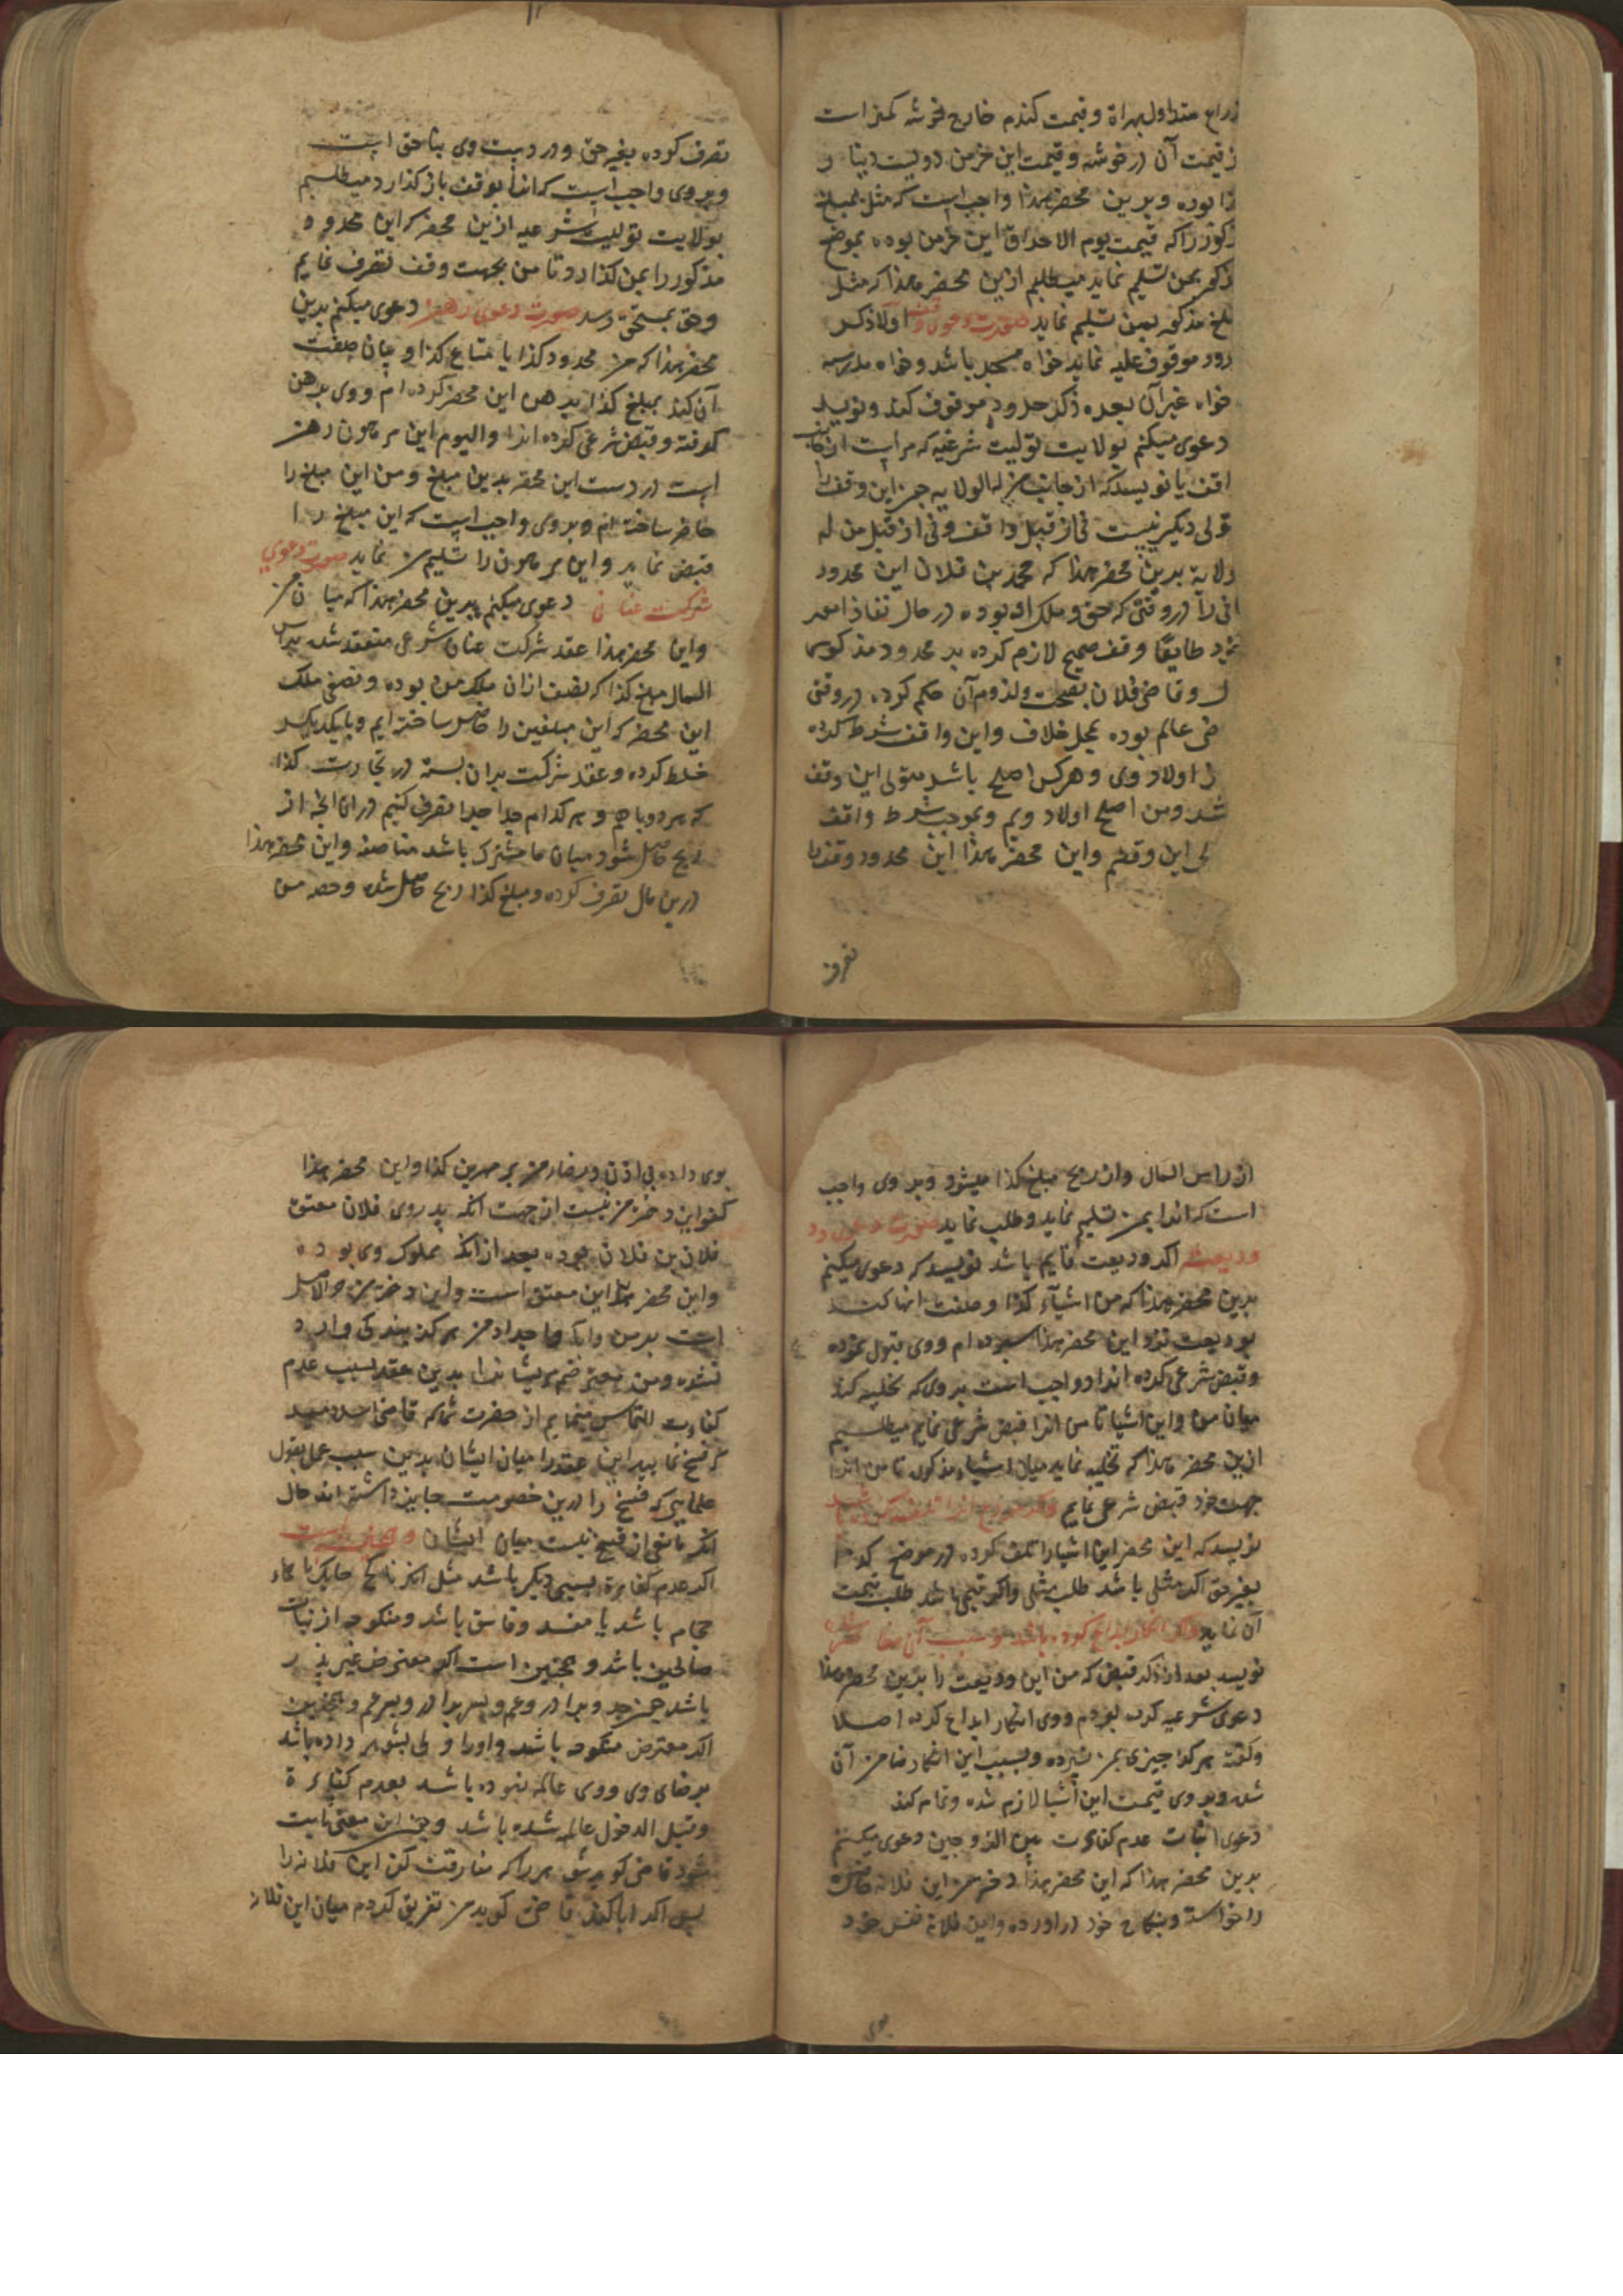 ذراع متداول بهراة و قیمت کندم خارج خوشه کمتر است
ز قیمت آن در خوشه و قیمت این خرمن دویست دینار
بوده و بدین محضر هذا واجب است که مثل مبلغ
مذکور را که قیمت یوم الاحراق این خرمن بوده بموضع
بمن تسلیم نماید میطلبم ازین محضر هذا که مثل
مبلغ مذکور بمن تسلیم نماید صورت دعوی وقف اولا ذکر
موقوف علیه نماید خواه مسجد باشد و خواه مدرسه
خواه غیر آن بعده ذکر حدود موقوف کند و نویسد
دعوی میکنم بولایت تولیت شرعیه که مراست از
واقف یا نویسد که از جانب من له الولایه جز این وقف را
متولی دیگر نیست نی از قبل واقف و نی از قبل من له
ولایة بدین محضر هذا که محمد بن فلان این محدود
را در وقتی که حق و ملک او بوده در حال نفاذ امر
خود طایعا وقف صحیح لازم کرده بر محدود مذکور
و قاضی فلان بصحت و لزوم آن حکم کرده در وقتی
عالم بوده بمحل خلاف و این واقف شرط کرده
از اولاد وی و هر کس اصلح باشد متولی این وقف
باشد و من اصلح اولاد ویم و بموجب شرط واقف
این وقفم و این محضر هذا این محدود وقف را
تصرف
تصرف کرده بغیر حق و در دست وی بناحق است
و بر وی واجب است که انرا بوقف باز کذارد میطلبم
بولایت تولیت شرعیه ازین محضر که این محدود
مذکور را بمن کذارد تا من بجهت وقف تصرف نمایم
و حق بمستحق رسد صورت دعوی رهن دعوی میکنم بدین
محضر هذا که من محدود کذا یا متاع کذا و بیان صفت
آن کند بمبلغ کذا برهن این محضر کرده ام و وی برهن
کرفته و قبض شرعی کرده انرا و الیوم این مرهون رهن
است در دست این محضر بدین مبلغ و من این مبلغ را
حاضر ساخته ام و بر وی واجب است که این مبلغ را
قبض نماید و این مرهون را تسلیم من نماید صورت دعوی
شرکت عنان دعوی میکنم بدین محضر هذا که میان من
و این محضر هذا عقد شرکت عنان شرعی منعقد شد براس
المال مبلغ کذا که نصف ازان ملک من بوده و نصفی ملک
این محضر که این مبلغین را حاصل ساخته ایم و بایکدیکر
خلط کرده و عقد شرکت بران بسته در تجارت کذا
که هر دو باهم و هر کدام جدا جدا تصرف کنیم دران انچه از
ربح حاصل شود میان ما مشترک باشد مناصفه و این محضر هذا
درین مال تصرف کرده و مبلغ کذا ربح حاصل شده و حصه من
از راس المال و از ربح مبلغ کذا میشود و بر وی واجب
است که انرا بمن تسلیم نماید و طلب نماید صورت دعوی رد
ودیعت اکر ودیعت قایم باشد نویسد که دعوی میکنم
بدین محضر هذا که من اشیاء کذا و صفت انها کند
بودیعت نزد این محضر هذا سپرده ام و وی قبول نموده
و قبض شرعی کرده انرا و واجب است بر وی که تخلیه کند
میان من و این اشیا تا من انرا قبض شرعی نمایم میطلبم
ازین محضر هذا که تخلیه نماید میان اشیاء مذکور تا من انرا
جهت خود قبض شرعی نمایم
نویسد که این محضر این اشیا را تلف کرده در موضع کذا
بغیر حق اکر مثلی باشد طلب مثلی و اکر قیمی باشد طلب قیمت
آن نماید و اکر انکار ایداع کرده باشد و بسبب آن ضامن شده
نویسد بعد از ذکر قبض که من این ودیعت را بدین محضر هذا
دعوی شرعیه کرده بودم و وی انکار ایداع کرده اصلا
و کفته هرکز چیزی بمن نسپرده و بسبب این انکار ضامن آن
شده و بر وی قیمت این اشیا لازم شده و تمام کند
دعوی اثبات عدم کفاءت بین الزوجین دعوی میکنم
بدین محضر هذا که این محضر هذا دختر من این فلانه حاضره
را خواسته و بنکاح خود دراورده و این فلانه نفس خود
بوی
بوی داده بی اذن و رضاء من بر مهرین کذا و این محضر هذا
کفو این دختر من نیست از جهت انکه پدر وی فلان معتق
فلان بن فلان بوده بعد از انکه مملوک وی بوده
و این محضر هذا این معتق است و این دختر من حر الاصل
است پدر من و انکه اجداد من هرکز بندکی وارد
نشده و من معترضم مریشانرا بدین عقد بسبب عدم
کفاءت التماس مینمایم از حضرت شما که قاضی اید
که فسخ نمایید این عقد را میان ایشان بدین سبب عمل بقول
علمایی که فسخ را درین خصومت جایز داشته اند حال
انکه مانعی از فسخ نیست میان ایشان
اکر عدم کفاءة بسببی دیکر باشد مثل انکه ناکح حایک یا
حجام باشد یا مفسد و فاسق باشد و منکوحه از بنات
صالحین باشد و همچنین است اکر معترض غیر پدر
باشد چون جد و برادر و عم و پسر برادر و پسر عم و همچنین
اکر معترض منکوحه باشد و اورا ولی بشوهر داده باشد
برضای وی و وی عالمه نبوده باشد بعدم کفاءة
و قبل الدخول عالمه شده باشد و چون این معنی ثابت
شود قاضی کوید شوهر را که مفارقت کن این فلانه را
پس اکر ابا کند قاضی کوید من تفریق کردم میان این فلانه